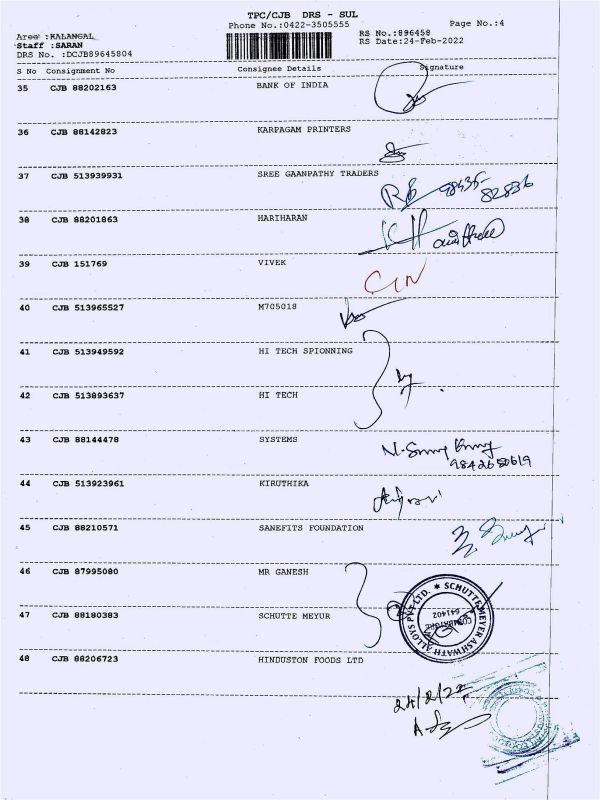 TPC/CJB DRS - SUL
Phone No.:0422-3505555
Page No.:4
Area :KALANGAL
RS No.:896458
Staff :SARAN
RS Date:24-Feb-2022
DRS No. :DCJB89645804
S No Consignment No Consignee Details Signature
35 CJB 88202163 BANK OF INDIA
36 CJB 88142823 KARPAGAM PRINTERS
37 CJB 513939931 SREE GAANPATHY TRADERS
98435-
82836
38 CJB 88201863 HARIHARAN
39 CJB 151769 VIVEK
40 CJB 513965527 M705018
41 CJB 513949592 HI TECH SPIONNING
42 CJB 513893637 HI TECH
43 CJB 88144478 SYSTEMS
9842650619
44 CJB 513923961 KIRUTHIKA
45 CJB 88210571 SANEFITS FOUNDATION
46 CJB 87995080 MR GANESH
SCHUTTE MEYER ASHWATH ALLOYS PVT. LTD.
COIMBATORE
641402
47 CJB 88180383 SCHUTTE MEYUR
48 CJB 88206723 HINDUSTON FOODS LTD
24/2/22